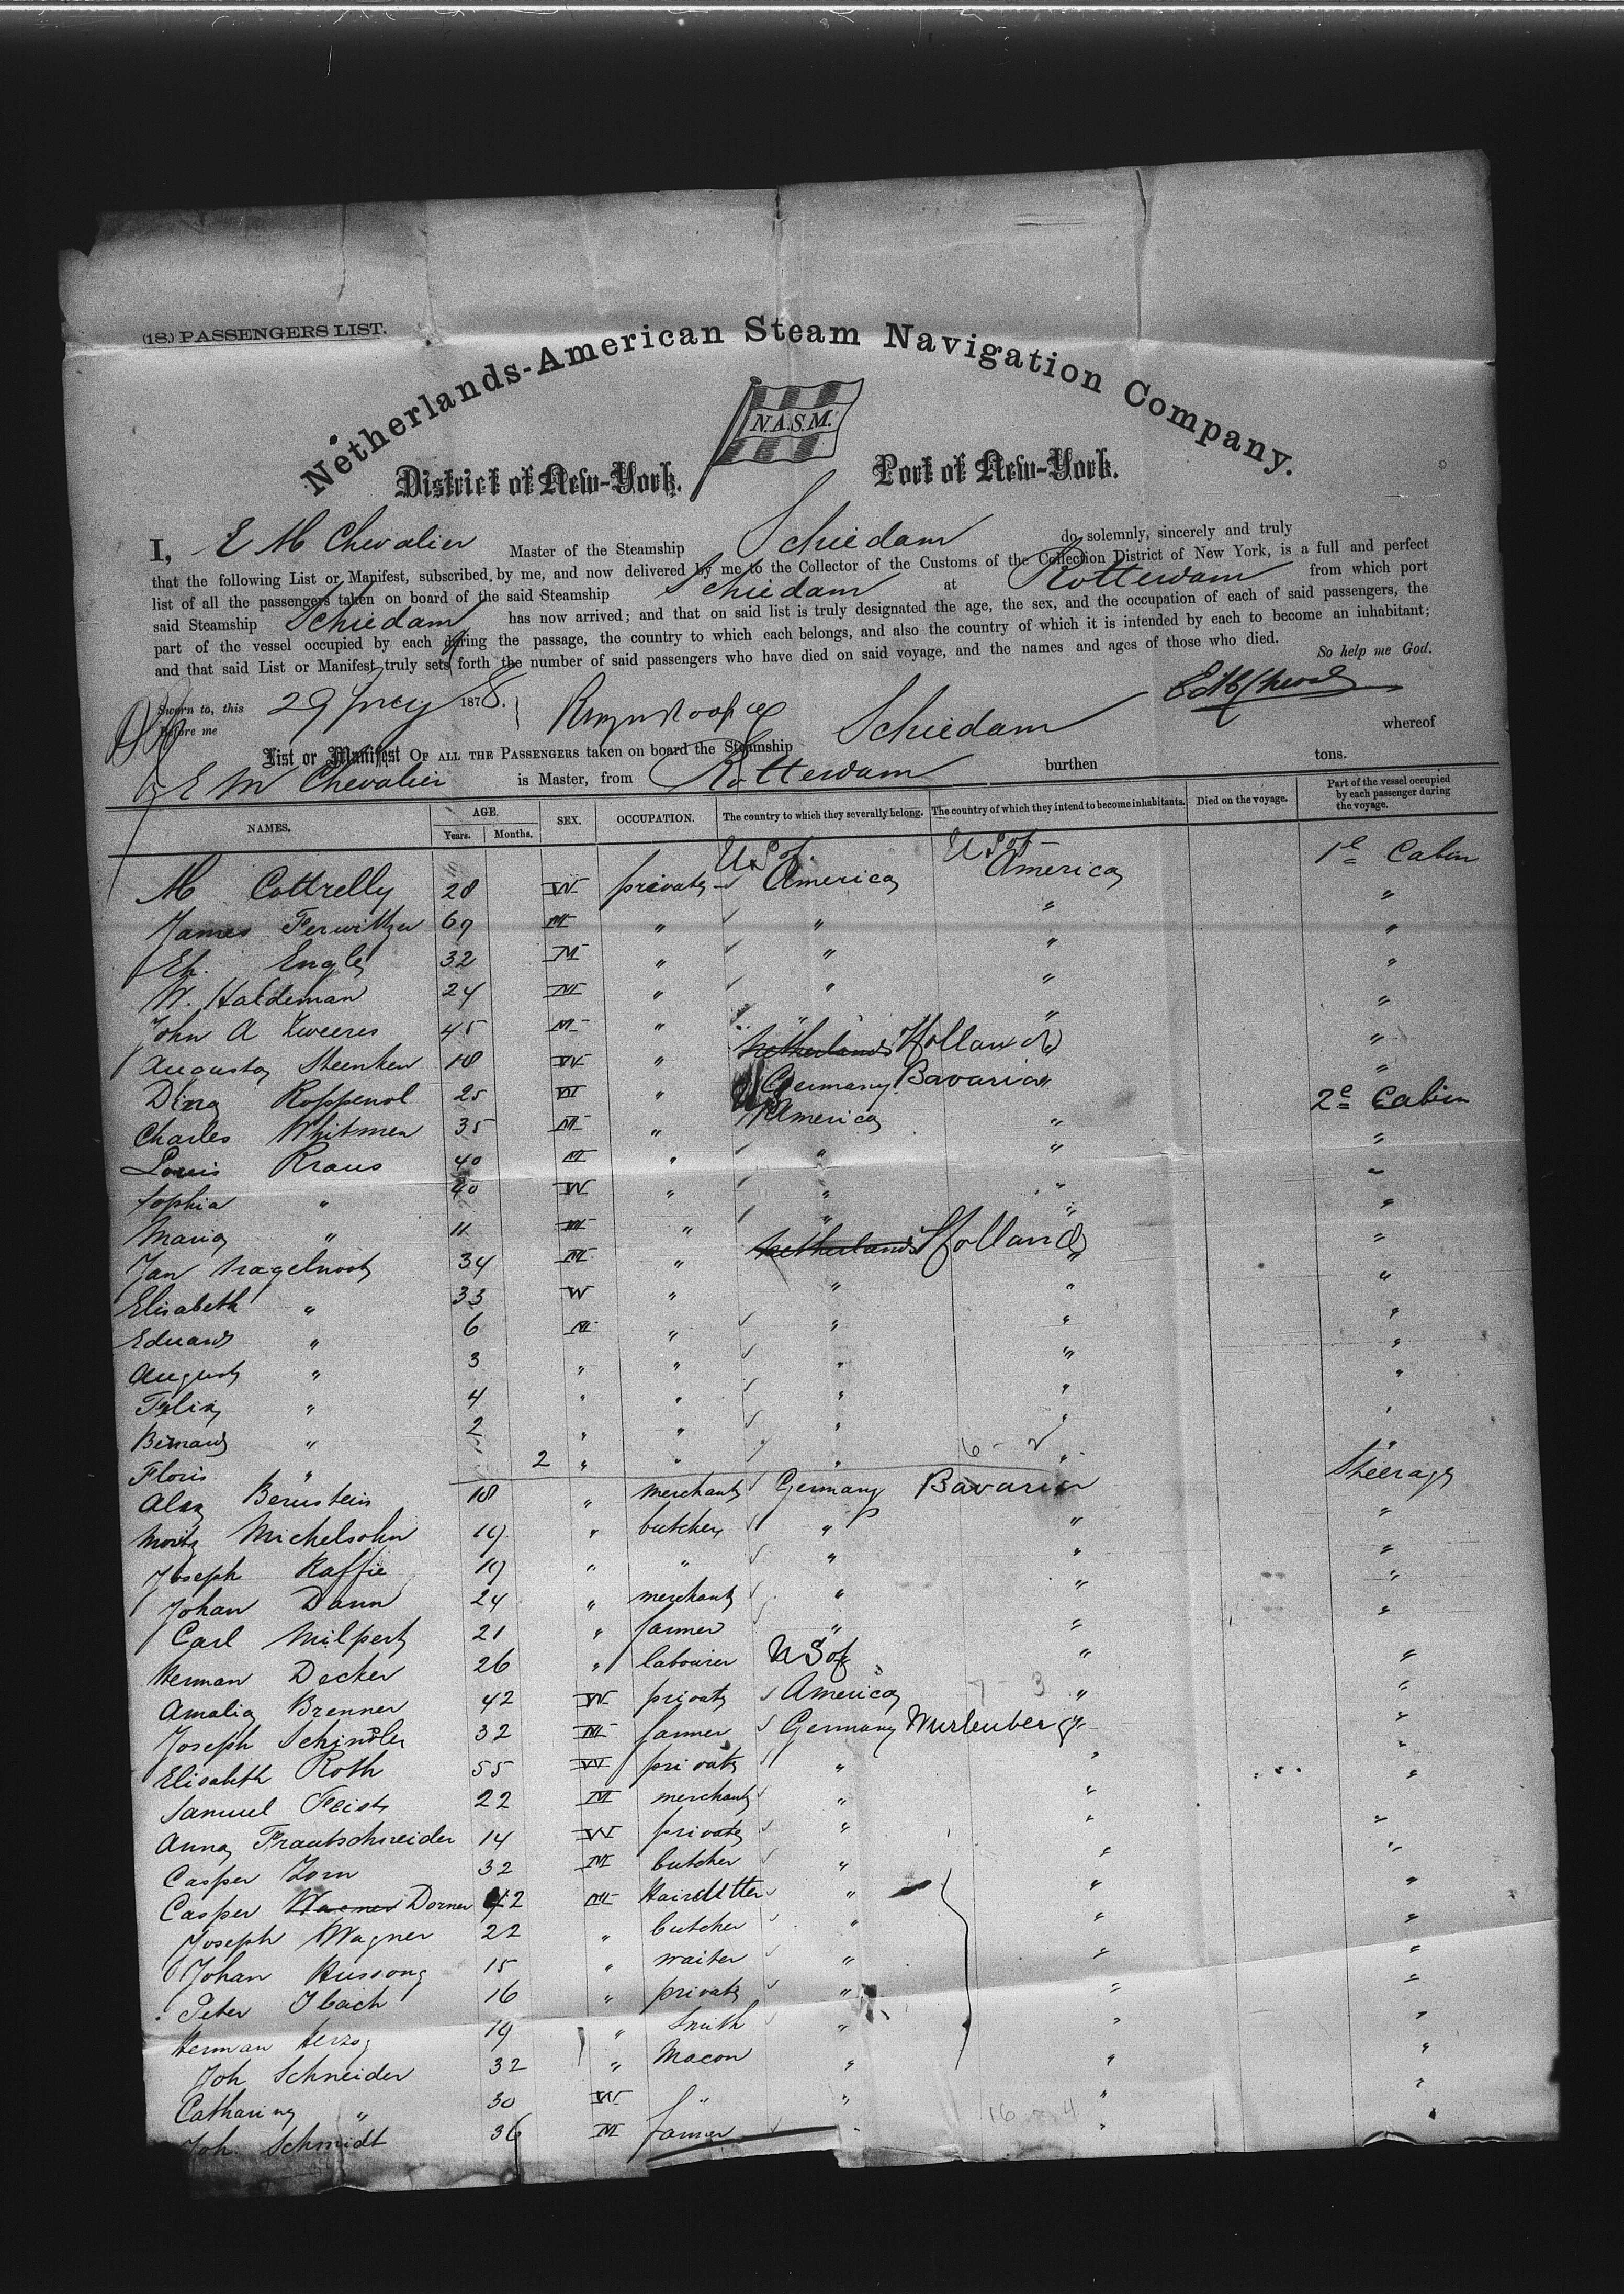 (18.) PASSENGERS LIST.
Netherlands-American Steam Navigation Company.
N.A.S.M.
District of New-York. Port of New-York.
I, E M Chevalier Master of the Steamship Schiedam do solemnly, sincerely and truly
that the following List or Manifest, subscribed by me, and now delivered by me to the Collector of the Customs of the Collection District of New York, is a full and perfect
list of all the passengers taken on board of the said Steamship Schiedam at Rotterdam from which port
said Steamship Schiedam has now arrived; and that on said list is truly designated the age, the sex, and the occupation of each of said passengers, the
part of the vessel occupied by each during the passage, the country to which each belongs, and also the country of which it is intended by each to become an inhabitant;
and that said List or Manifest truly sets forth the number of said passengers who have died on said voyage, and the names and ages of those who died.
So help me God.
Sworn to, this 29 1878.
Before me
List or Manifest OF ALL THE PASSENGERS taken on board the Steamship Schiedam whereof
E M Chevalier is Master, from Rotterdam burthen tons.
NAMES. AGE. Years. Months. SEX. OCCUPATION. The country to which they severally belong. The country of which they intend to become inhabitants. Died on the voyage. Part of the vessel occupied by each passenger during the voyage.
M Cottrelly 28 W private U S of America U S of America 1e Cabin
James 69 M " " " "
Eh. Engle 32 M " " " "
W. Haldeman 24 M " " " "
John A 45 M " " " "
Augusta Steenken 18 W " Netherlands Holland " "
Dina Roppenol 25 W " Germany Bavaria " "
Charles Whitmen 35 M " America " 2e Cabin
Louis Kraus 40 M " " " "
Sophia " 40 W " " " "
Maria " 11 " " " "
Jan Nagelvoort 34 M " Netherlands Holland " "
Elisabeth " 33 W " " " "
Eduard " 6 M " " " "
August " 3 " " " " "
Felix " 4 " " " " "
Bernard " 2 " " " " "
Floris " 2 " " " " "
6 - 2
Alex Bernstein 18 " merchant Germany Bavaria Steerage
Moritz Michelsohn 19 " butcher " " "
Joseph Raffie 19 " " " " "
Johan Dann 24 " merchant " " "
Carl Milpert 21 " farmer " " "
Herman Decker 26 " labourer U S of " "
Amalia Brenner 42 W private America " "
7 - 3
Joseph Schindler 32 M farmer Germany Wurtenberg " "
Elisabeth Roth 55 W private " " "
Samuel Feist 22 M merchant " " "
Anna Trautschneider 14 W private " " "
Casper Zorn 32 M butcher " " "
Casper Wagner Dorner 42 M Haircutter " " "
Joseph Wagner 22 " butcher " " "
Johan Hussong 15 " waiter " " "
Peter Ibach 16 " private " " "
Herman Herzog 19 " Smith " " "
Joh Schneider 32 " Macon " " "
Catharina " 30 W " " " "
16 4
Joh. Schmidt 36 M farmer " " "